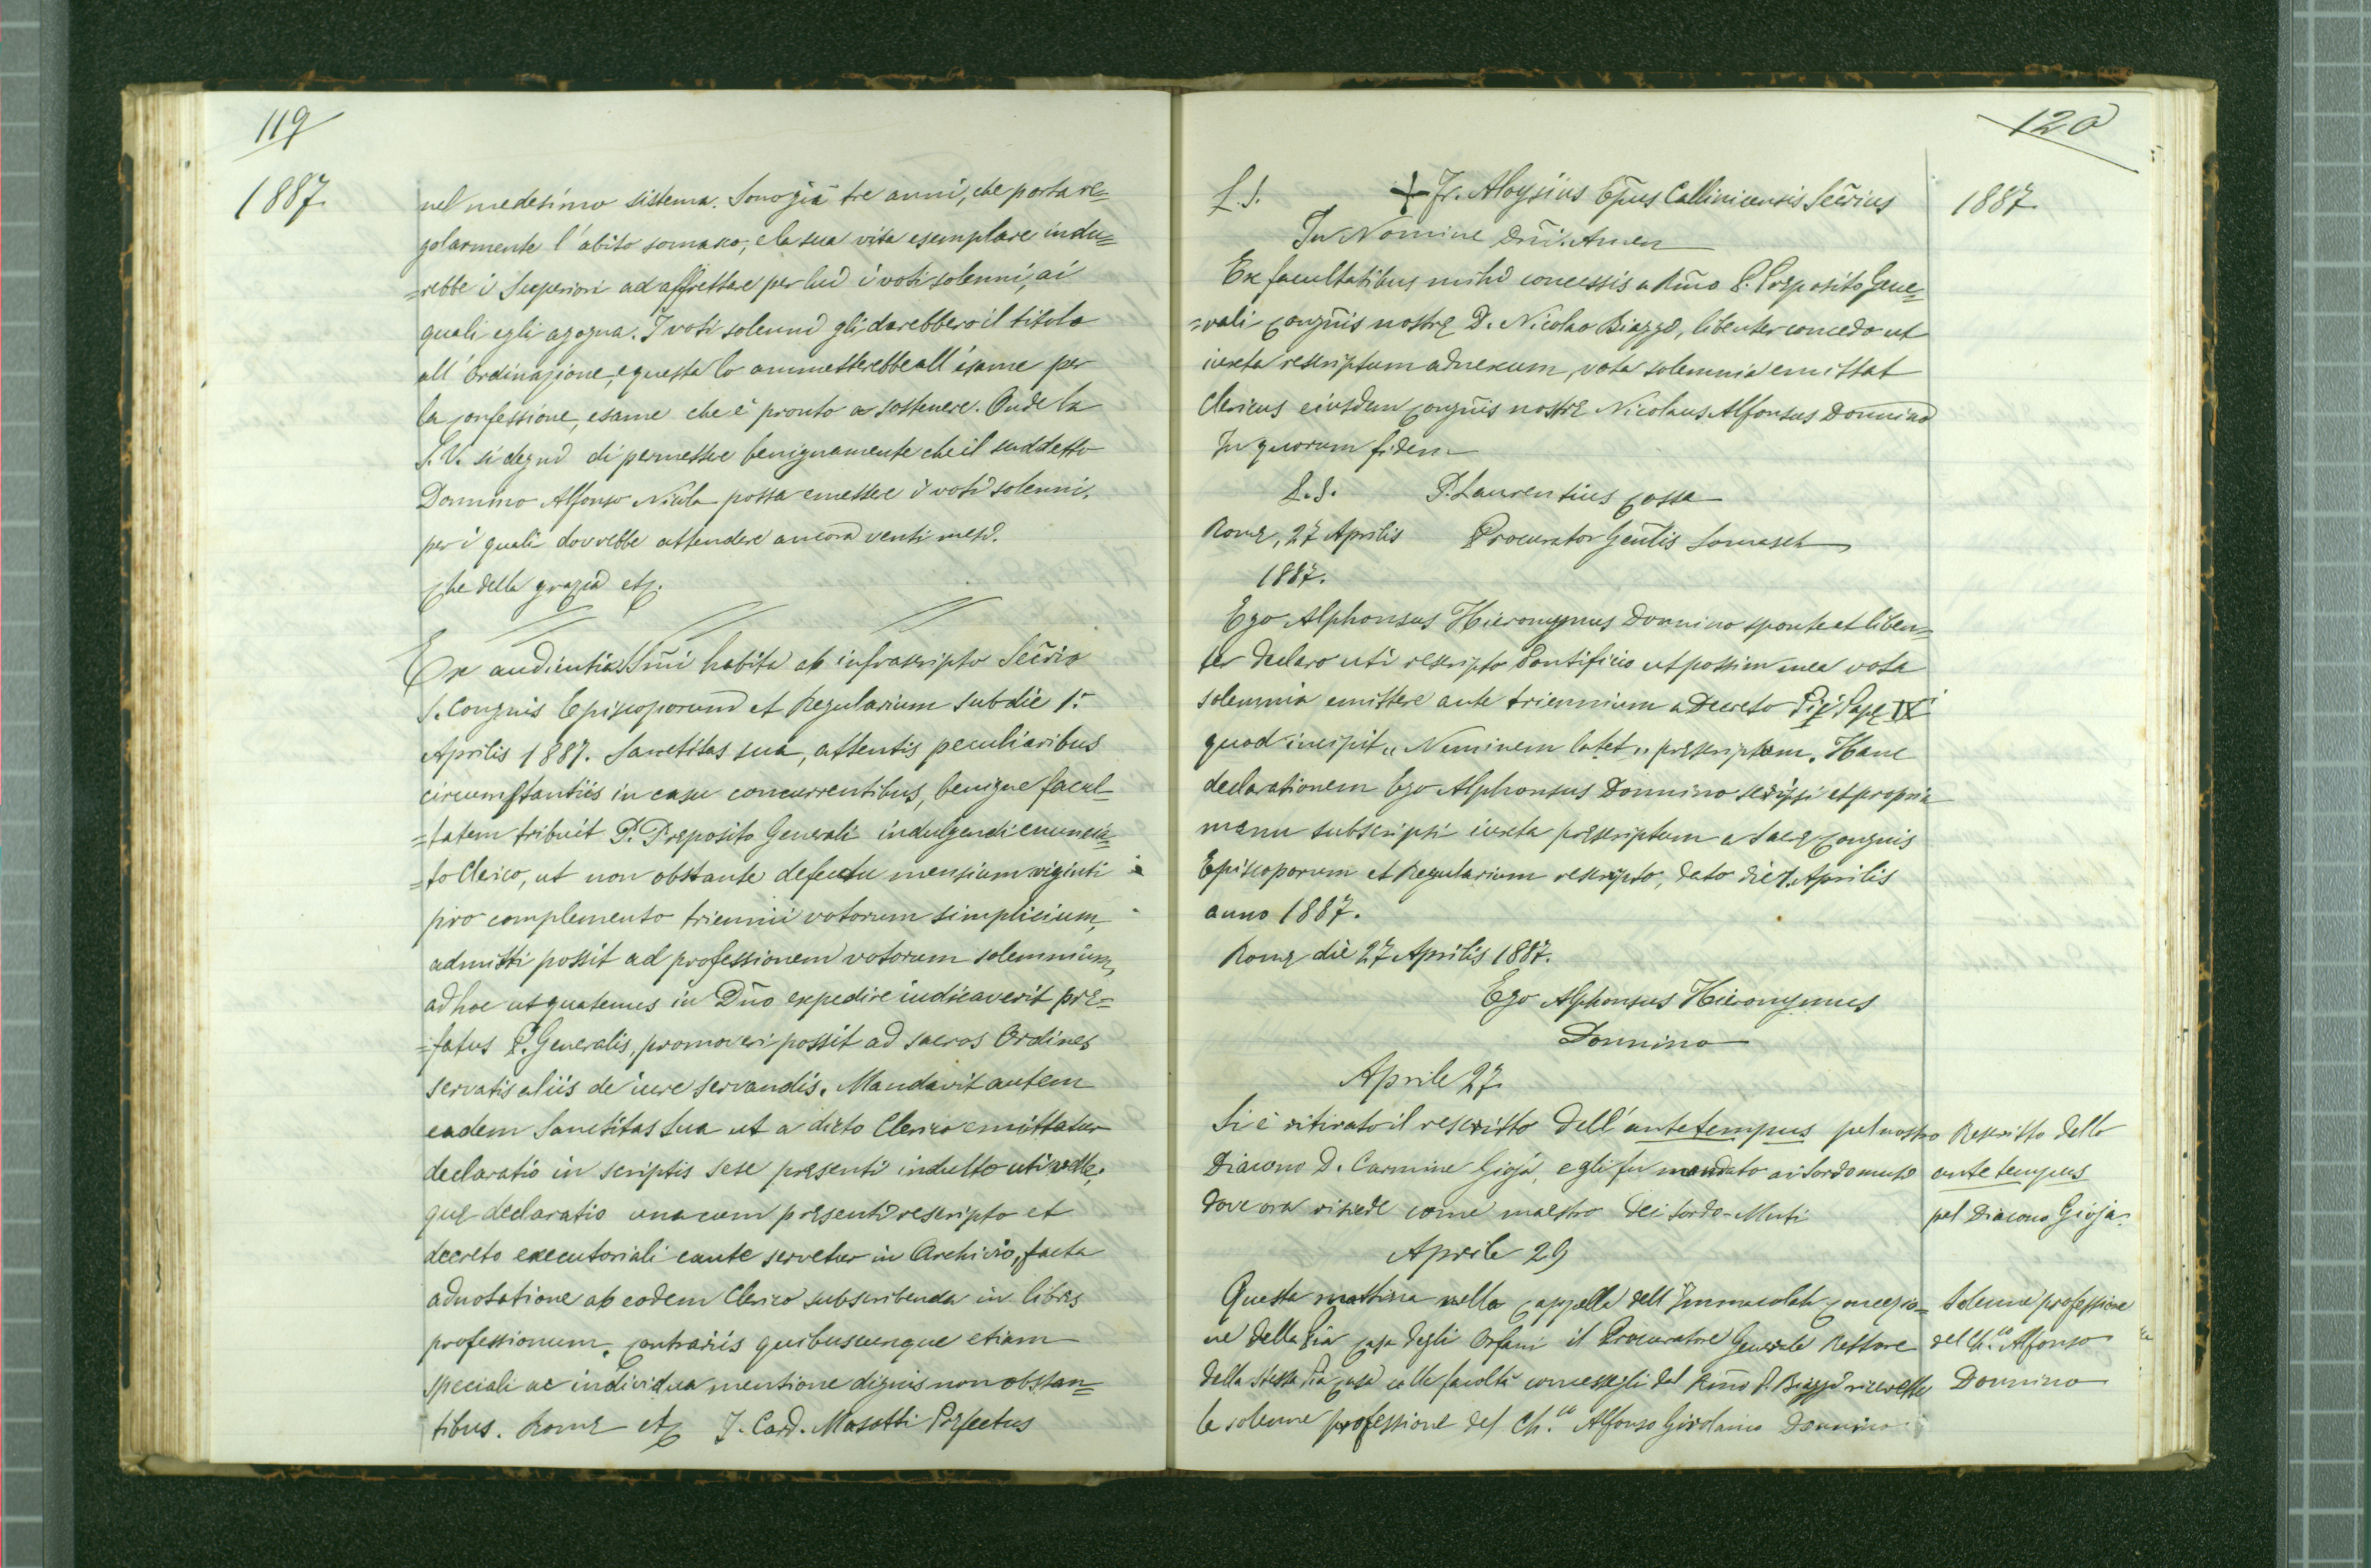 119
1887
nel medesimo sistema. Sono già tre anni, che porta re=
golarmente l'abito somasco, e la sua vita esemplare indu=
=rebbe i Superiori ad affrettare per lui i voti solenni, ai
quali egli agogna. I voti solenni gli darebbero il titolo
all'Ordinazione, e questa lo ammetterebbe all'esame per
la confessione, esame che è pronto a sostenere. Onde la
S. V. si degni di permettere benignamente che il suddetto
Donnino Alfonso Nicola possa emettere i voti solenni,
per i quali dovrebbe attendere ancora venti mesi.
Che della grazia etc.
Ex audientia SSmi habita ab infrascripto Secrio
S. Congnis Episcoporum et Regularium sub die 1.
Aprilis 1887. Sanctitas sua, attentis peculiaribus
circumstantiis in casu concurrentibus, benigne facul=
=tatem tribuit P. Præposito Generali indulgendi enuncia=
=to Clerico, ut non obstante defectu mensium viginti
pro complemento triennii votorum simplicium,
admitti possit ad professionem votorum solemnium,
ad hoc ut quatenus in Dno expedire iudicaverit præ=
=fatus P. Generalis, promoveri possit ad sacros Ordines
servatis aliis de iure servandis. Mandavit autem
eadem Sanctitas Sua ut a dicto Clerico emittatur
declaratio in scriptis sese præsenti indulto uti velle,
quæ declaratio una cum præsenti rescripto et
decreto executoriali caute servetur in Archivio, facta
adnotatione ab eodem Clerico subscribenda in libris
professionum. Contrariis quibuscunque etiam
speciali ac individua mentione dignis non obstan=
tibus. Romæ etc J. Card. Masotti Præfectus
120
1887
L. S. + Fr. Aloysius Epus Callinicensis Secrius
In Nomine Dni. Amen
Ex facultatibus mihi concessis a Rmo P. Præposito Gene=
=rali Congnis nostræ D. Nicolao Biaggi, libenter concedo ut
iuxta rescriptum adnexum, vota solemnia emittat
Clericus eiusdem Congnis nostræ Nicolaus Alfonsus Donnino
In quorum fidem
L. S. P. Laurentius Cossa
Romæ, 27 Aprilis Procurator Genlis Somasch
1887.
Ego Alphonsus Hieronymus Donnino sponte et liben=
ter declaro uti rescripto Pontificio ut possim mea vota
solemnia emittere ante triennium a Decreto Pii Papæ IX
quod incipit „ Neminem latet „ præscriptum. Hanc
declarationem Ego Alphonsus Donnino scripsi et propria
manu subscripsi iuxta præscriptum a Sacræ Congnis
Episcoporum et Regularium rescripto, dato die 1. Aprilis
anno 1887.
Romæ die 27 Aprilis 1887.
Ego Alphonsus Hieronymus
Donnino
Aprile 27
Si è ritirato il rescritto dell'antetempus pel nostro
Diacono D. Carmine Gioja, egli fu mandato ai Sordomuti
dove ora risiede come maestro dei Sordo-Muti
Rescritto dello
ante tempus
pel Diacono Gioja.
Aprile 29
Questa mattina nella Cappella dell'Immacolata Concezio=
ne della Pia Casa degli Orfani il Procuratore Generale Rettore
della stessa Pia Casa colle facoltà concessegli dal Rmo P. Biaggi ricevette
la solenne professione del Ch.co Alfonso Girolamo Donnino
Solenne professione
del Ch.co Alfonso
Donnino